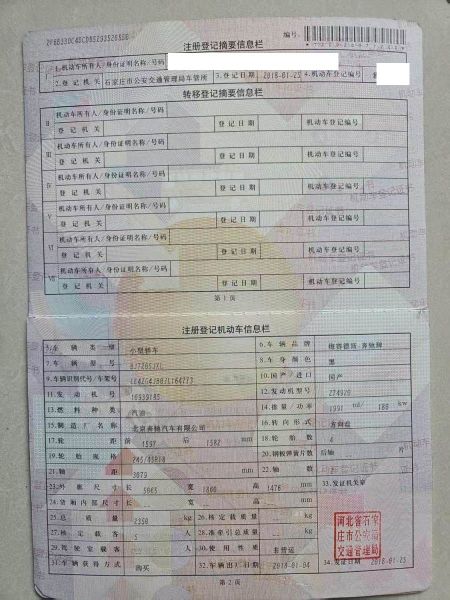 注册登记摘要信息栏
编号:
1.机动车所有人/身份证明名称/号码
2.登记机关 石家庄市公安交通管理局车管所 3.登记日期 2018-01-25 4.机动车登记编号
转移登记摘要信息栏
II 机动车所有人/身份证明名称/号码
登记机关 登记日期 机动车登记编号
III 机动车所有人/身份证明名称/号码
登记机关 登记日期 机动车登记编号
IV 机动车所有人/身份证明名称/号码
登记机关 登记日期 机动车登记编号
V 机动车所有人/身份证明名称/号码
登记机关 登记日期 机动车登记编号
VI 机动车所有人/身份证明名称/号码
登记机关 登记日期 机动车登记编号
VII 机动车所有人/身份证明名称/号码
登记机关 登记日期 机动车登记编号
第1页
注册登记机动车信息栏
5.车辆类型 小型轿车 6.车辆品牌 梅赛德斯-奔驰牌
7.车辆型号 8.车身颜色 黑
9.车辆识别代号/车架号 10.国产/进口 国产
11.发动机号 12.发动机型号 274920
13.燃料种类 汽油 14.排量/功率 1991 ml/ kw
15.制造厂名称 北京奔驰汽车有限公司 16.转向形式 方向盘
17.轮距 前 1597 后 1582 mm 18.轮胎数 4
19.轮胎规格 245/45R18 20.钢板弹簧片数 后轴 片
21.轴距 3079 mm 22.轴数 2
23.外廓尺寸 长 5065 宽 1860 高 mm 33.发证机关章
24.货厢内部尺寸 长 宽 高 mm
25.总质量 2350 kg 26.核定载质量 kg
27.核定载客 5 人 28.准牵引总质量 kg
29.驾驶室载客 人 30.使用性质 非营运
31.车辆获得方式 购买 32.车辆出厂日期 2018-01-04 34.发证日期 2018-01-25
河北省石家
庄市公安局
交通管理局
第2页